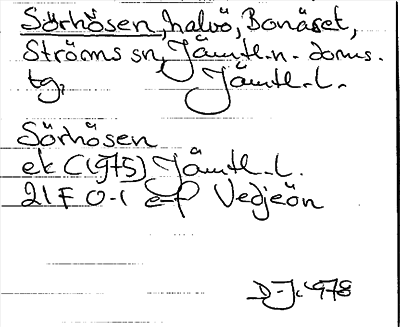 Sörhösen, halvö, Bonäset,
Ströms sn, Jämtl. n. doms.
tg, Jämtl. l.
Sörhösen
ek C(1975) Jämtl. l.
21F 0-1 e-f Vedjeön
D-J. 1978